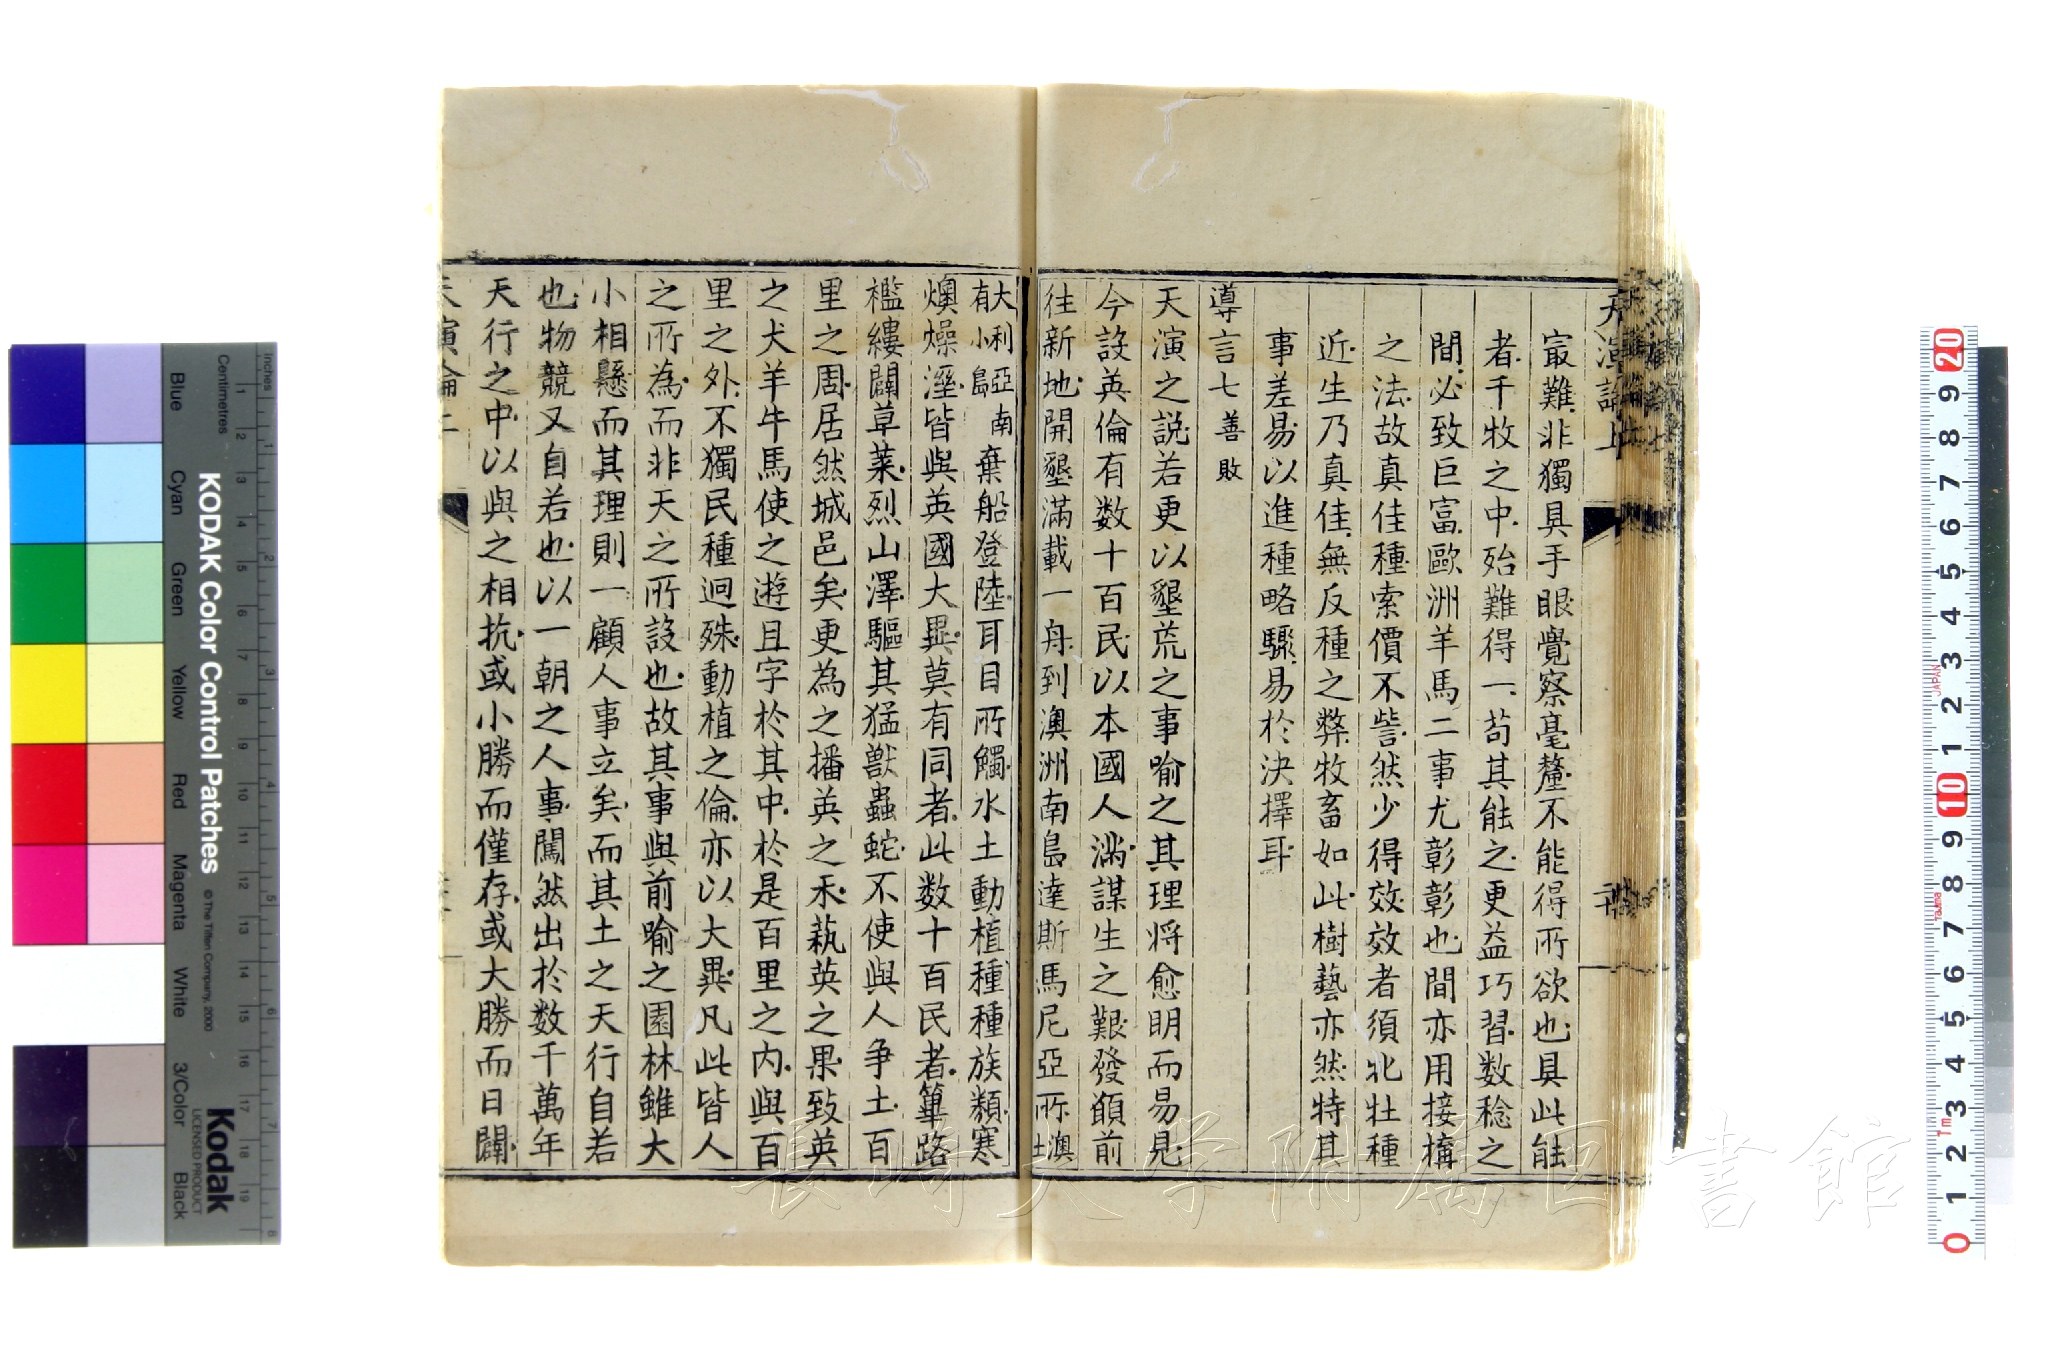 天演論上
冣難非獨具手眼覺察毫釐不能得所欲也具此能
者千牧之中殆難得一苟其能之更益巧習數稔之
間必致巨富歐洲羊馬二事尤彰彰也間亦用接搆
之法故真佳種索價不訾然少得效效者須牝牡種
近生乃真佳無反種之弊牧畜如此樹藝亦然特其
事差易以進種略驟易於決擇耳
導言七 善敗
天演之説若更以墾荒之事喻之其理將愈明而易見
今設英倫有数十百民以本國人滿謀生之艱發願前
往新地開墾滿載一舟到澳洲南島達斯馬尼亞所澳土
大利亞南
有小島
棄船登陸耳目所觸水土動植種種族類寒
燠燥溼皆與英國大異莫有同者此数十百民者篳路
襤縷闢草萊烈山澤驅其猛獸蟲蛇不使與人爭土百
里之周居然城邑矣更為之播英之禾蓺英之果致英
之犬羊牛馬使之遊且字於其中於是百里之内與百
里之外不獨民種迥殊動植之倫亦以大異凡此皆人
之所為而非天之所設也故其事與前喻之園林雖大
小相懸而其理則一顧人事立矣而其土之天行自若
也物競又自若也以一朝之人事闖然出於数千萬年
天行之中以與之相抗或小勝而僅存或大勝而日闢
天演論上
長崎大学附属図書館
KODAK Color Control Patches
© The Tiffen Company, 2000
Kodak
LICENSED PRODUCT
Inches
Centimetres
Blue
Cyan
Green
Yellow
Red
Magenta
White
3/Color
Black
JAPAN
Tajima